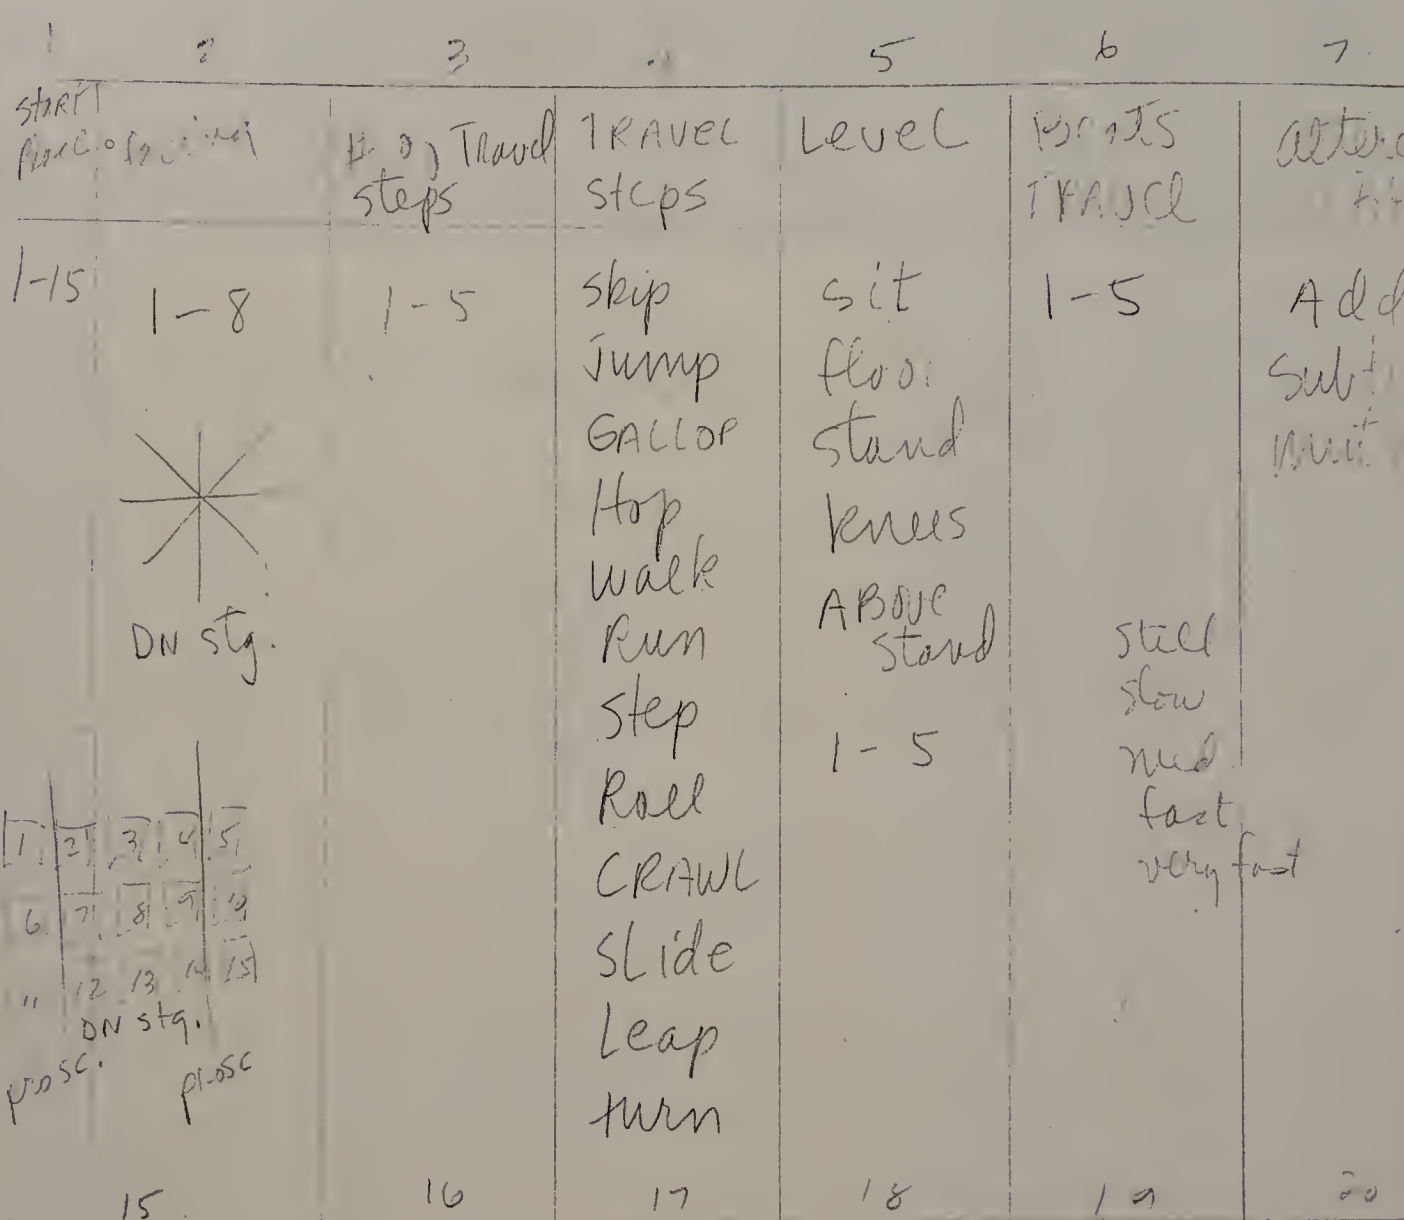 1 2 3 4 5 6 7
START
Place
# of Travel
steps
TRAVEL
steps
Level
TRAVEL
1-15
1-8
DN stg.
1 2 3 4 5
6 7 8 9 10
11 12 13 14 15
DN stg.
prosc. prosc
1-5
skip
Jump
GALLOP
Hop
walk
Run
step
Roll
CRAWL
SLide
Leap
turn
sit
floor
stand
knees
ABove
stand
1-5
1-5
still
slow
med
fast
very fast
Add
15 16 17 18 19 20